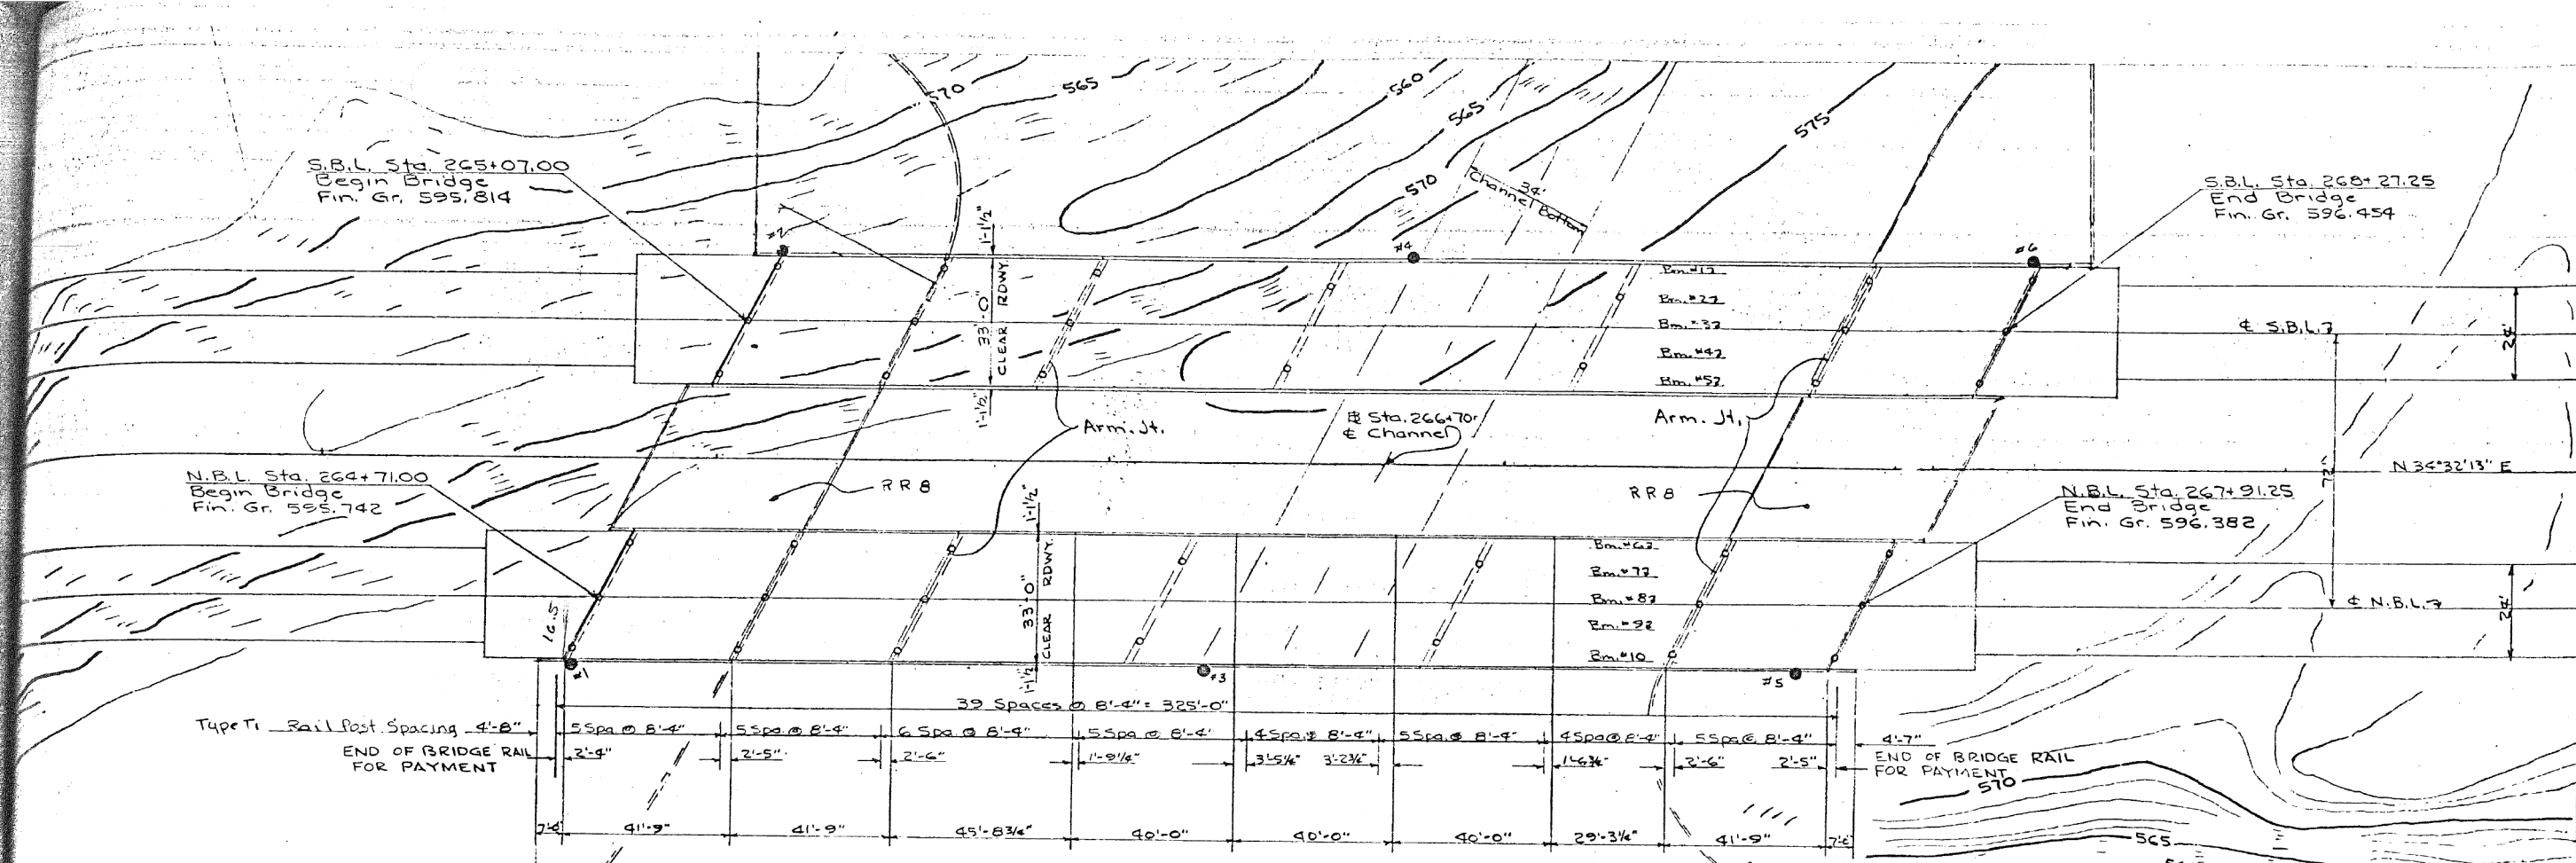 570
565
560
565
575
570
34'
Channel Bottom
S.B.L. Sta. 265+07.00
Begin Bridge
Fin. Gr. 595.814
S.B.L. Sta. 268+27.25
End Bridge
Fin. Gr. 596.454
#2
#4
#6
1'-1½"
33'-0"
CLEAR RDWY.
1'-1½"
Bm. #3
Bm. #4
Bm. #5
℄ S.B.L.
24'
Arm. Jt.
Sta. 266+70
℄ Channel
Arm. Jt.
72'
N 34°32'13" E
N.B.L. Sta. 264+71.00
Begin Bridge
Fin. Gr. 595.742
RR8
RR8
N.B.L. Sta. 267+91.25
End Bridge
Fin. Gr. 596.382
1'-1½"
33'-0"
CLEAR RDWY.
1'-1½"
16.5
Bm. #7
Bm. #8
Bm. #9
Bm. #10
℄ N.B.L.
24'
#1
#3
#5
39 Spaces @ 8'-4" = 325'-0"
Type T1 Rail Post Spacing 4'-8"
5 Spa @ 8'-4" 5 Spa @ 8'-4" 6 Spa @ 8'-4" 5 Spa @ 8'-4" 4 Spa @ 8'-4" 5 Spa @ 8'-4" 4 Spa @ 8'-4" 5 Spa @ 8'-4" 4'-7"
END OF BRIDGE RAIL
FOR PAYMENT
2'-4" 2'-5" 2'-6" 1'-9¼" 3'-5¼" 3'-2¾" 1'-6¾" 2'-6" 2'-5"
END OF BRIDGE RAIL
FOR PAYMENT
570
41'-9" 41'-9" 45'-8¾" 40'-0" 40'-0" 40'-0" 29'-3¼" 41'-9"
565